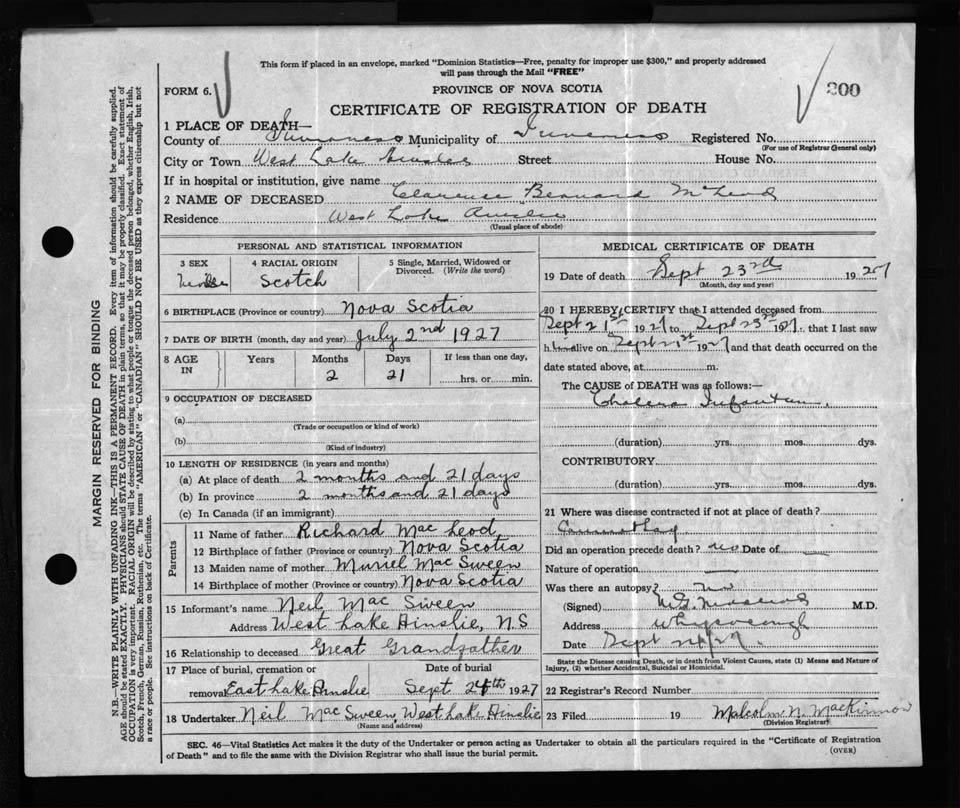 This form if placed in an envelope, marked "Dominion Statistics—Free, penalty for improper use $300," and properly addressed
will pass through the Mail "FREE"
FORM 6.
PROVINCE OF NOVA SCOTIA
200
CERTIFICATE OF REGISTRATION OF DEATH
1 PLACE OF DEATH—
County of Inverness Municipality of Inverness Registered No.
(For use of Registrar General only)
City or Town West Lake Ainslie Street House No.
If in hospital or institution, give name
2 NAME OF DECEASED Clarence Bernard McLeod
Residence West Lake Ainslie
(Usual place of abode)
PERSONAL AND STATISTICAL INFORMATION
3 SEX 4 RACIAL ORIGIN 5 Single, Married, Widowed or
Divorced. (Write the word)
Scotch
6 BIRTHPLACE (Province or country) Nova Scotia
7 DATE OF BIRTH (month, day and year) July 2nd 1927
8 AGE IN Years Months Days If less than one day,
2 21 hrs. or min.
9 OCCUPATION OF DECEASED
(a)
(Trade or occupation or kind of work)
(b)
(Kind of industry)
10 LENGTH OF RESIDENCE (in years and months)
(a) At place of death 2 months and 21 days
(b) In province 2 months and 21 days
(c) In Canada (if an immigrant)
Parents
11 Name of father Richard Mac Leod
12 Birthplace of father (Province or country) Nova Scotia
13 Maiden name of mother Muriel Mac Sween
14 Birthplace of mother (Province or country) Nova Scotia
15 Informant's name Neil Mac Sween
Address West Lake Ainslie, N.S
16 Relationship to deceased Great Grandfather
17 Place of burial, cremation or Date of burial
removal East Lake Ainslie Sept 24th 1927
18 Undertaker Neil Mac Sween, West Lake Ainslie
Name and address
MEDICAL CERTIFICATE OF DEATH
19 Date of death Sept 23rd 1927
(Month, day and year)
20 I HEREBY CERTIFY that I attended deceased from
Sept 21st 1927 to Sept 23rd 1927, that I last saw
h alive on Sept 21st 1927 and that death occurred on the
date stated above, at m.
The CAUSE of DEATH was as follows:—
Cholera Infantum
(duration) yrs. mos. dys.
CONTRIBUTORY
(duration) yrs. mos. dys.
21 Where was disease contracted if not at place of death?
Did an operation precede death? no Date of —
Nature of operation —
Was there an autopsy? no
(Signed) M.D.
Address Whycocomagh
Date Sept 24/27.
State the Disease causing Death, or in death from Violent Causes, state (1) Means and Nature of
Injury, (2) whether Accidental, Suicidal or Homicidal.
22 Registrar's Record Number
23 Filed 19 Malcolm N. MacKinnon
(Division Registrar)
SEC. 46—Vital Statistics Act makes it the duty of the Undertaker or person acting as Undertaker to obtain all the particulars required in the "Certificate of Registration
of Death" and to file the same with the Division Registrar who shall issue the burial permit.
(OVER)
MARGIN RESERVED FOR BINDING
N.B.—WRITE PLAINLY WITH UNFADING INK—THIS IS A PERMANENT RECORD. Every item of information should be carefully supplied.
AGE should be stated EXACTLY. PHYSICIANS should STATE CAUSE OF DEATH in plain terms, so that it may be properly classified. Exact statement of
OCCUPATION is very important. RACIAL ORIGIN will be described by stating to what people or tongue the deceased person belonged, whether English, Irish,
Scotch, French, German, Russian, Ruthenian, etc. The terms "AMERICAN" or "CANADIAN" SHOULD NOT BE USED as they express citizenship but not
a race or people. See instructions on back of Certificate.